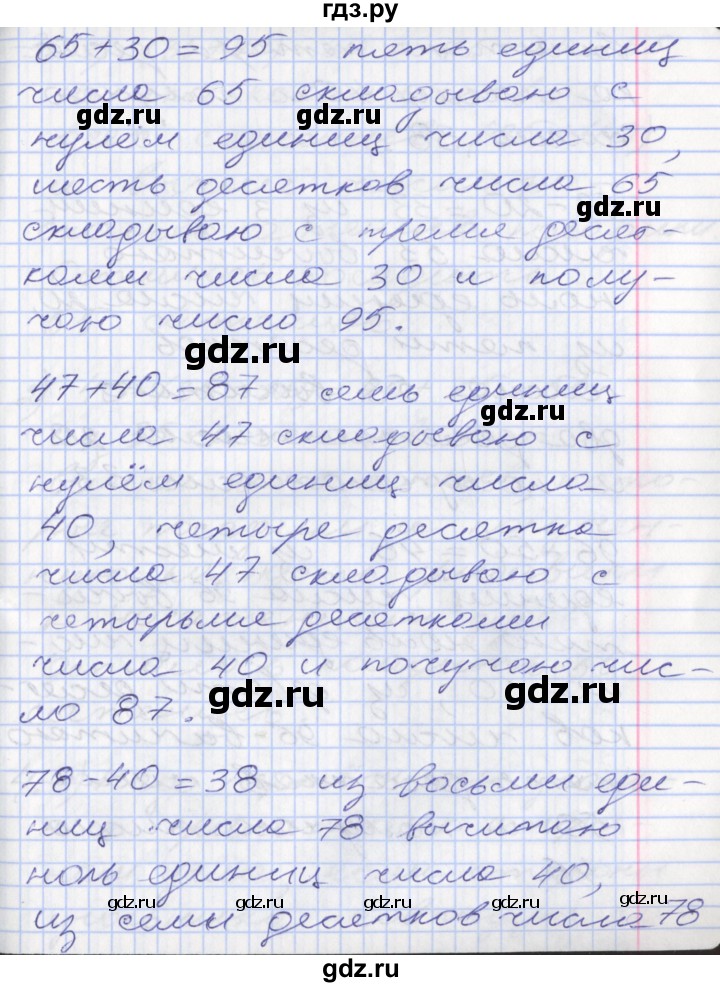 гдз.ру
65+30=95 пять единиц
числа 65 складываю с
gdz.ru gdz.ru
нулём единиц числа 30,
шесть десятков числа 65
gdz.ru
складываю с тремя десят-
ками числа 30 и полу-
чаю число 95.
gdz.ru
47+40=87 семь единиц
gdz.ru
числа 47 складываю с
нулём единиц числа
40, четыре десятка
числа 47 складываю с
четырьмя десятками
числа 40 и получаю чис-
gdz.ru gdz.ru
ло 87.
78-40=38 из восьми еди-
ниц числа 78 вычитаю
ноль единиц числа 40,
gdz.ru gdz.ru gdz.ru gdz.ru
из семи десятков числа 78
gdz.ru